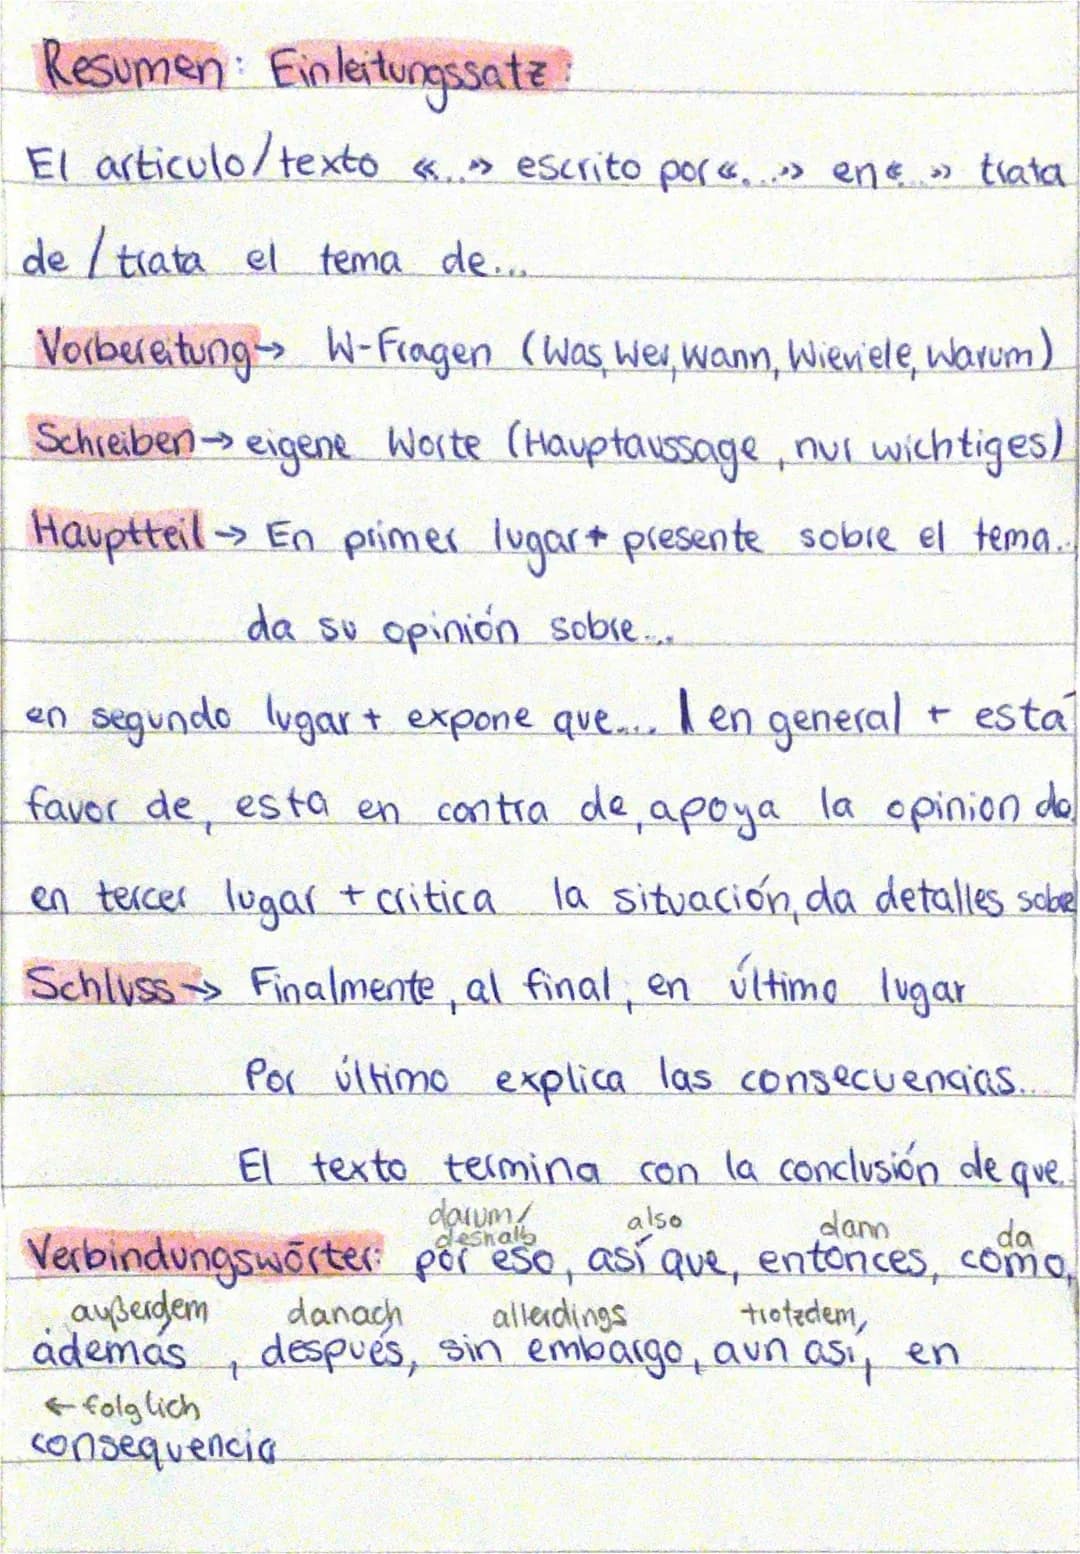 Resumen: Einleitungssatz:
El articulo/texto «...» escrito por «...» en « » trata
de / trata el tema de...
Vorbereitung → W-Fragen (Was, Wer, Wann, Wieviele, Warum)
Schreiben → eigene Worte (Hauptaussage, nur wichtiges)
Hauptteil → En primer lugar + presente sobre el tema..
da su opinión sobre...
en segundo lugar + expone que... | en general + está
favor de, esta en contra de, apoya la opinion de
en tercer lugar + critica la situación, da detalles sobre
Schluss → Finalmente, al final, en último lugar
Por último explica las consecuencias...
El texto termina con la conclusión de que
darum/ deshalb also dann da
Verbindungswörter: por eso, así que, entonces, como,
außerdem danach allerdings trotzdem,
además, después, sin embargo, aun así, en
← folglich
consequencia